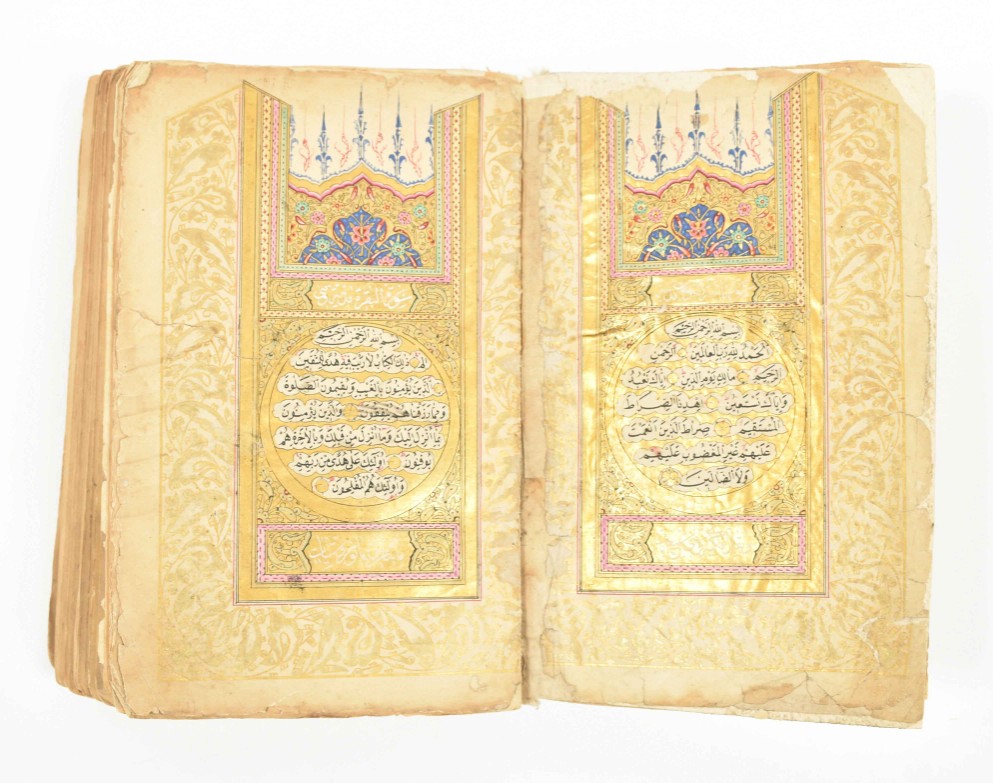 بِسْمِ اللهِ الرَّحْمٰنِ الرَّحِيمِ
اَلْحَمْدُ لِلّٰهِ رَبِّ الْعَالَمِينَ اَلرَّحْمٰنِ
الرَّحِيمِ مَالِكِ يَوْمِ الدِّينِ اِيَّاكَ نَعْبُدُ
وَاِيَّاكَ نَسْتَعِينُ اِهْدِنَا الصِّرَاطَ
الْمُسْتَقِيمَ صِرَاطَ الَّذِينَ اَنْعَمْتَ
عَلَيْهِمْ غَيْرِ الْمَغْضُوبِ عَلَيْهِمْ
وَلَا الضَّالِّينَ
سورة البقرة
بِسْمِ اللهِ الرَّحْمٰنِ الرَّحِيمِ
الٓمٓ ذٰلِكَ الْكِتَابُ لَا رَيْبَ فِيهِ هُدًى لِلْمُتَّقِينَ
اَلَّذِينَ يُؤْمِنُونَ بِالْغَيْبِ وَيُقِيمُونَ الصَّلٰوةَ
وَمِمَّا رَزَقْنَاهُمْ يُنْفِقُونَ وَالَّذِينَ يُؤْمِنُونَ
بِمَا اُنْزِلَ اِلَيْكَ وَمَا اُنْزِلَ مِنْ قَبْلِكَ وَبِالْاٰخِرَةِ هُمْ
يُوقِنُونَ اُولٰئِكَ عَلٰى هُدًى مِنْ رَبِّهِمْ
وَاُولٰئِكَ هُمُ الْمُفْلِحُونَ